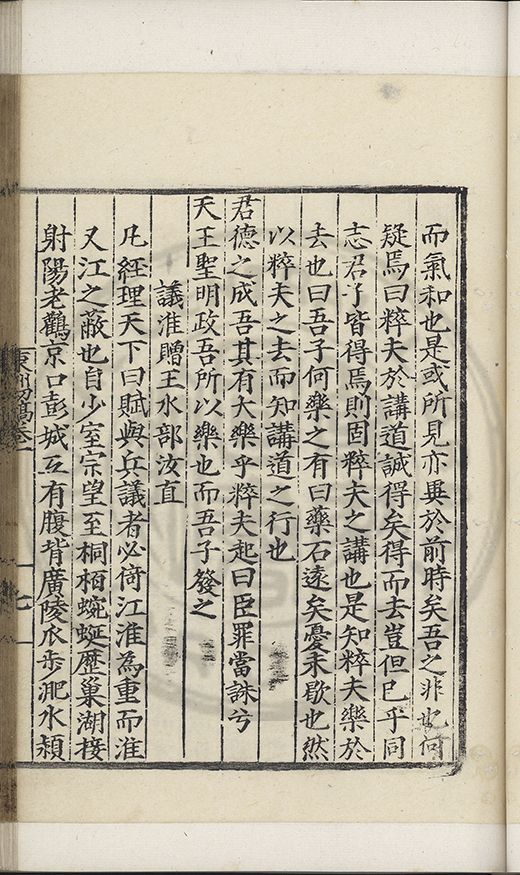 而氣和也是或所見亦異於前時矣吾之非也何
疑焉曰粹夫於講道誠得矣得而去豈但已乎同
志君子皆得焉則固粹夫之講也是知粹夫樂於
去也曰吾子何樂之有曰藥石遠矣憂未歇也然
以粹夫之去而知講道之行也
君德之成吾其有大樂乎粹夫起曰臣罪當誅兮
天王聖明政吾所以樂也而吾子發之
議淮贈王水部汝直
凡經理天下曰賦與兵議者必倚江淮為重而淮
又江之蔽也自少室宗望至桐栢蜿蜒歷巢湖接
射陽老鸛京口彭城互有腹背廣陵瓜步淝水潁